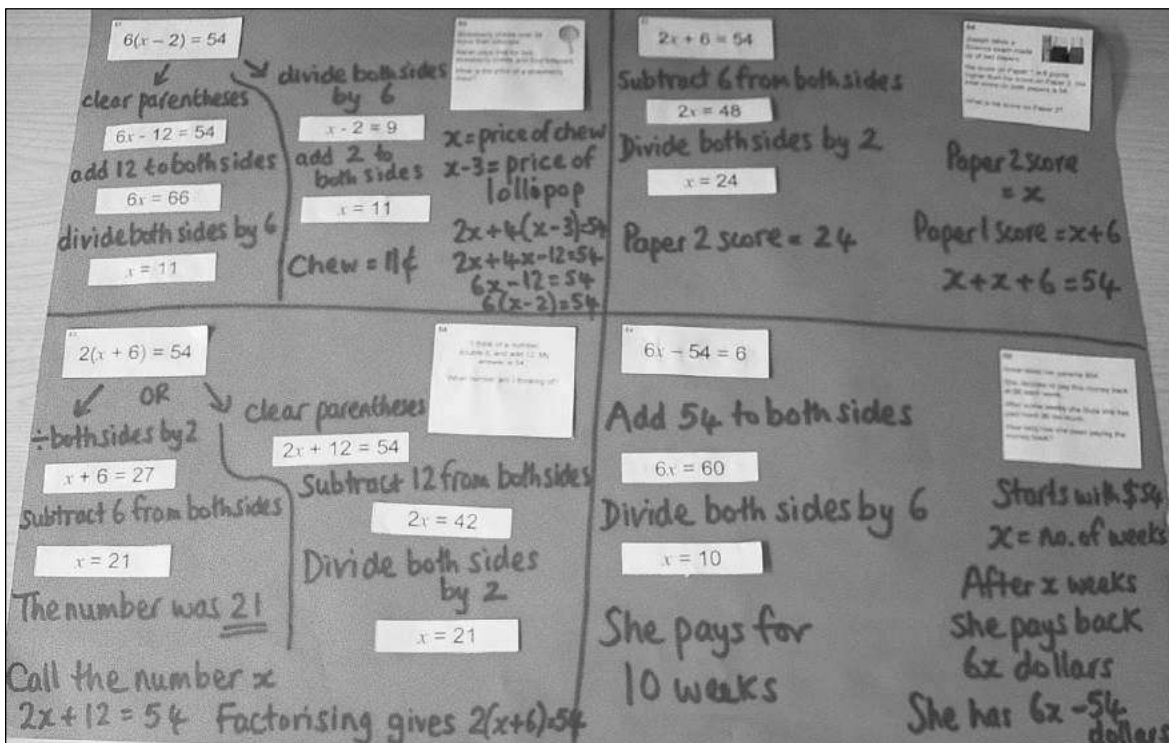 6(x − 2) = 54
clear parentheses
6x - 12 = 54
add 12 to both sides
6x = 66
divide both sides by 6
x = 11
divide both sides
by 6
x - 2 = 9
add 2 to
both sides
x = 11
Chew = 11¢
x = price of chew
x-3 = price of
lollipop
2x+4(x-3)=54
2x+4x-12=54
6x-12=54
6(x-2)=54
2x + 6 = 54
Subtract 6 from both sides
2x = 48
Divide both sides by 2
x = 24
Paper 2 score = 24
What is the score on Paper 2?
Paper 2 score
= x
Paper 1 score = x+6
x+x+6=54
2(x + 6) = 54
OR
÷ both sides by 2
x + 6 = 27
Subtract 6 from both sides
x = 21
The number was 21
clear parentheses
2x + 12 = 54
Subtract 12 from both sides
2x = 42
Divide both sides
by 2
x = 21
I think of a number,
double it, and add 12. My
answer is 54.
What number am I thinking of?
Call the number x
2x+12 = 54 Factorising gives 2(x+6)=54
6x − 54 = 6
Add 54 to both sides
6x = 60
Divide both sides by 6
x = 10
She pays for
10 weeks
Starts with $54
x = no. of weeks
After x weeks
she pays back
6x dollars
She has 6x-54
dollars